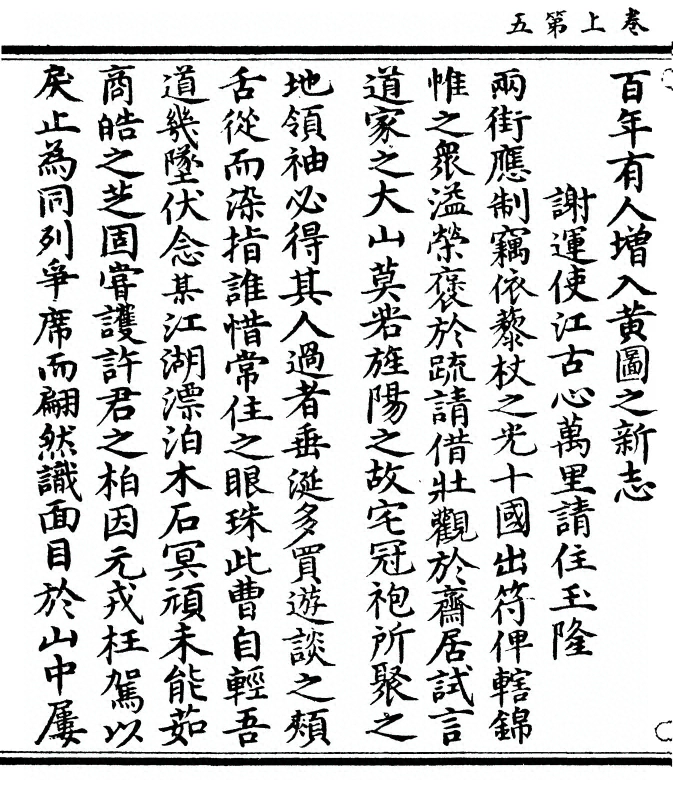 卷上第五
百年有人增入黃圖之新志
謝運使江古心萬里請住玉隆
兩街應制竊依藜杖之光十國出符俾轄錦
帷之衆溢榮褒於䟽請借壯觀於齋居試言
道家之大山莫若旌陽之故宅冠袍所聚之
地領袖必得其人過者垂涎多買遊談之頰
舌從而染指誰惜常住之眼珠此曹自輕吾
道幾墜伏念某江湖漂泊木石冥頑未能茹
商皓之芝固嘗護許君之柏因元戎枉駕以
戾止為同列爭席而翩然識面目於山中屢